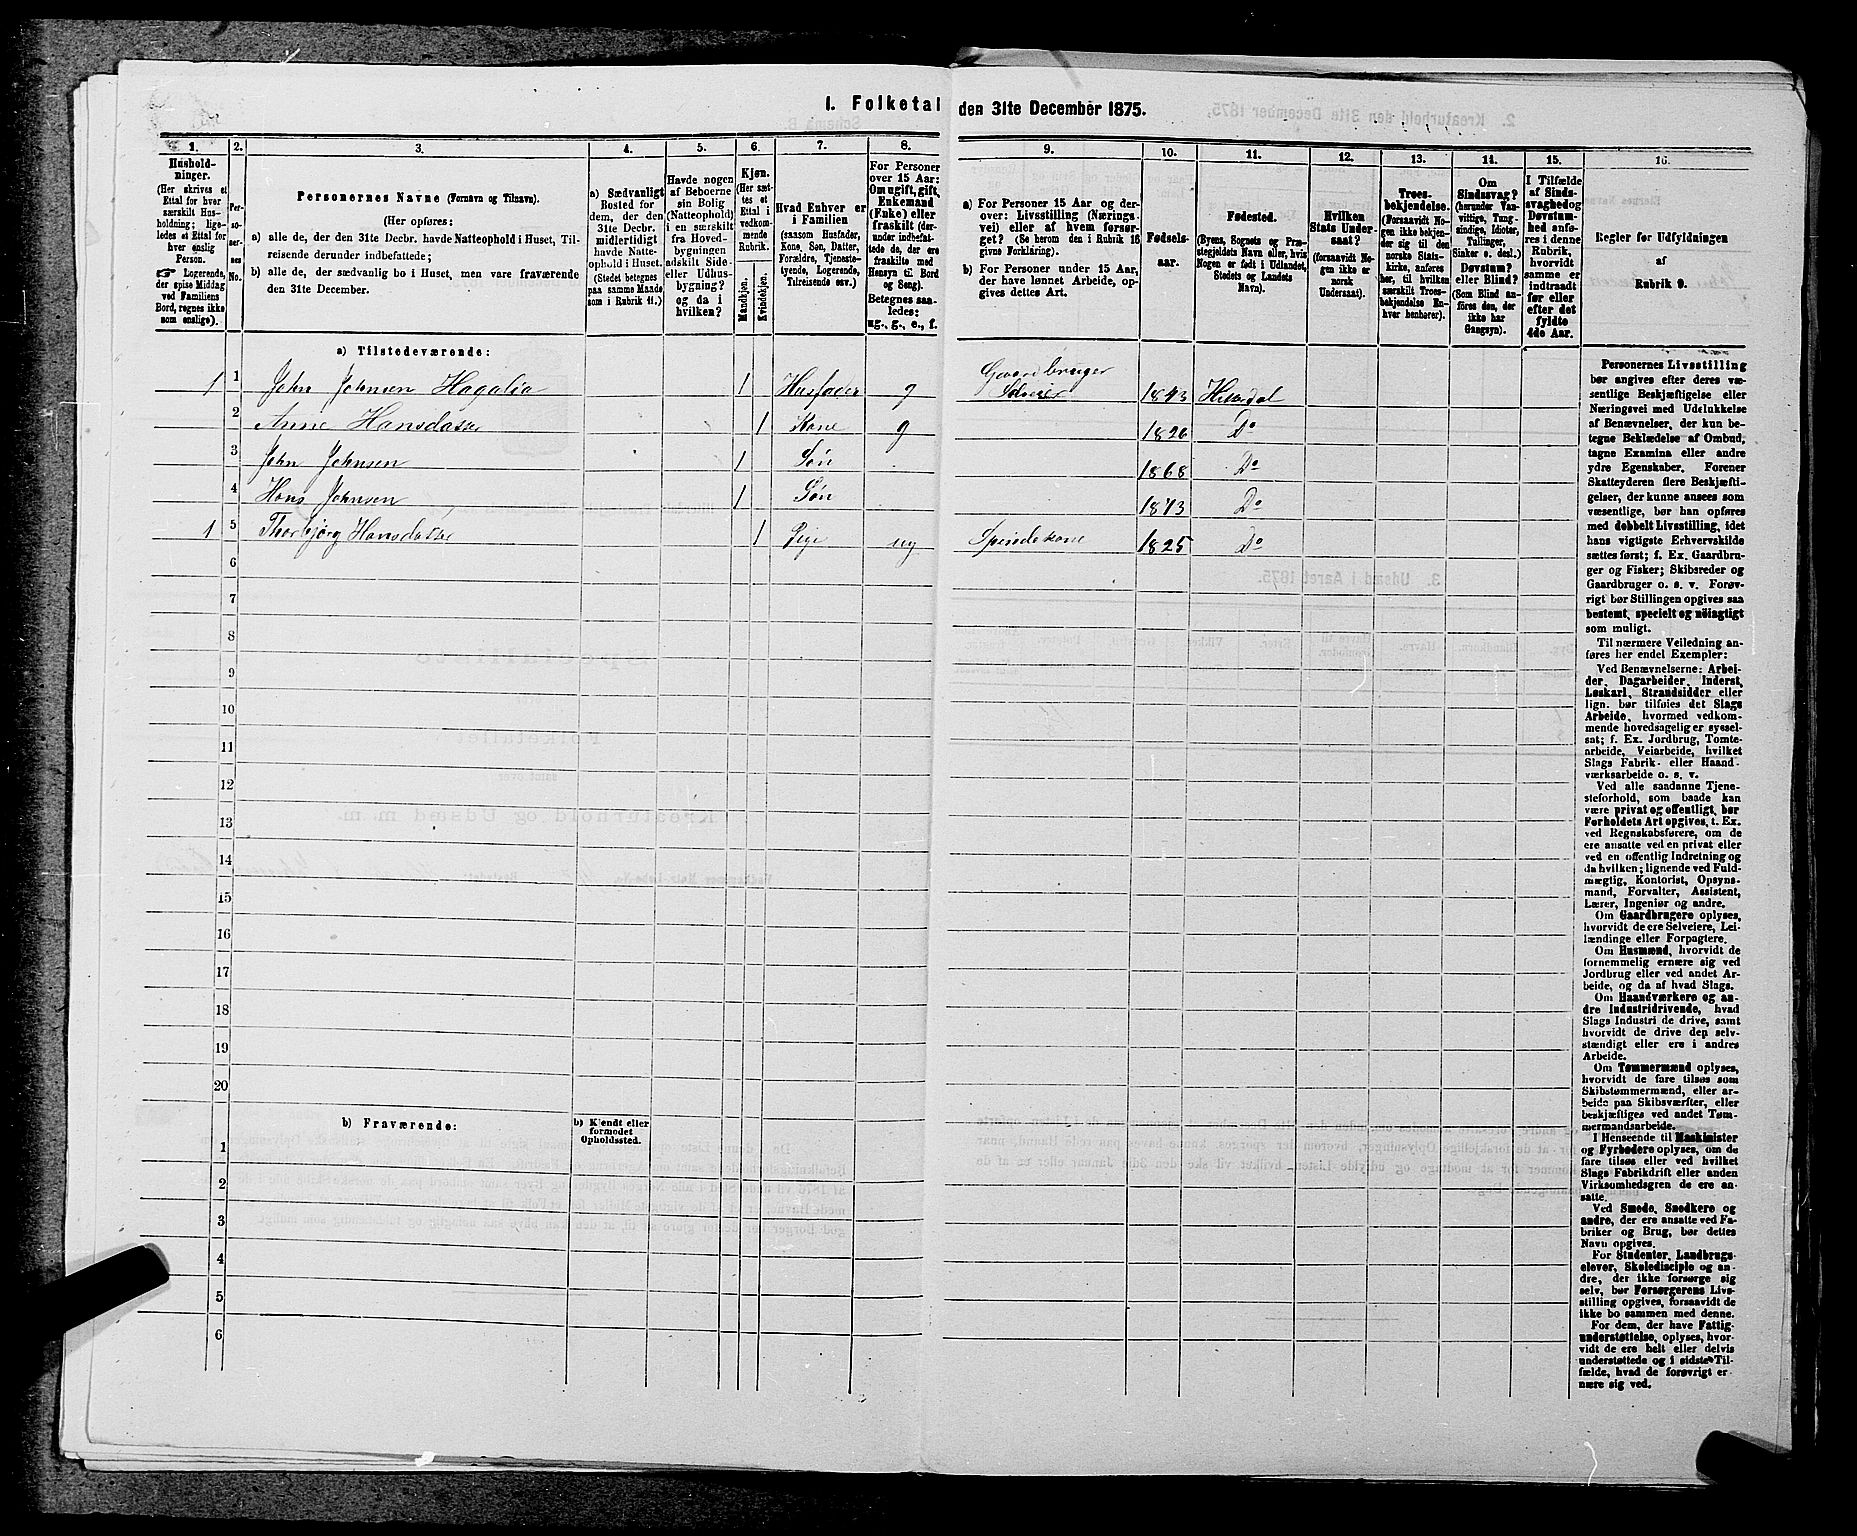 1. Folketal den 31te December 1875.
1.
2.
3.
4.
5.
6.
7.
8.
9.
10.
11.
12.
13.
14.
15.
16.
Hushold-
ninger.
(Her skrives et
Ettal for hver
særskilt Hus-
holdning; lige-
ledes et Ettal for
hver enslig
Person.
☞ Logerende,
der spise Middag
ved Familiens
Bord, regnes ikke
som enslige).
Per-
so-
ner-
nes
No.
Personernes Navne (Fornavn og Tilnavn).
(Her opføres:
a) alle de, der den 31te Decbr. havde Natteophold i Huset, Til-
reisende derunder indbefattede;
b) alle de, der sædvanlig bo i Huset, men vare fraværende
den 31te December.
a) Sædvanligt
Bosted for
dem, der den
31te Decbr.
midlertidigt
havde Natte-
ophold i Huset.
(Stedet betegnes
paa samme Maade
som i Rubrik 11.)
Havde nogen
af Beboerne
sin Bolig
(Natteophold)
i en særskilt
fra Hoved-
bygningen
adskilt Side-
eller Udhus-
bygning?
og da i
hvilken?
Kjøn.
(Her sæt-
tes et
Ettal i
vedkom-
mende
Rubrik.
Mandkjøn.
Kvindekjøn.
Hvad Enhver er
i Familien
(saasom Husfader,
Kone, Søn, Datter,
Forældre, Tjeneste-
tyende, Logerende,
Tilreisende osv.)
For Personer
over 15 Aar:
Om ugift, gift,
Enkemand
(Enke) eller
fraskilt (der-
under indbefat-
tede de, der ere
fraskilte med
Hensyn til Bord
og Seng).
Betegnes saa-
ledes:
ug., g., e., f.
a) For Personer 15 Aar og der-
over: Livsstilling (Nærings-
vei) eller af hvem forsør-
get? (Se herom den i Rubrik 16
givne Forklaring).
b) For Personer under 15 Aar,
der have lønnet Arbeide, op-
gives dettes Art.
Fødsels-
aar.
Fødested.
(Byens, Sognets og Præ-
stegjeldets Navn eller, hvis
Nogen er født i Udlandet,
Stedets og Landets
Navn).
Hvilken
Stats Under-
saat?
(forsaavidt No-
gen ikke er
norsk
Undersaat).
Troes-
bekjendelse.
(Forsaavidt No-
gen ikke bekjen-
der sig til den
norske Stats-
kirke, anføres
her, til hvilken
særskilt Troes-
bekjendelse En-
hver henhører).
Om
Sindssvag?
(herunder Van-
vittige, Tung-
sindige, Idioter,
Tullinger,
Sinker o. desl.)
Døvstum?
eller Blind?
(Som Blind an-
føres den, der
ikke har
Gangsyn).
I Tilfælde
af Sinds-
svaghed og
Døvstum-
hed anfø-
res i denne
Rubrik,
hvorvidt
samme er
indtraadt
før eller
efter det
fyldte
4de Aar.
Regler for Udfyldningen
af
Rubrik 9.
a) Tilstedeværende:
1 1 John Johnsen Hagalia 1 Husfader g Gaardbruger Selveier 1843 Hitterdal
2 Anne Hansdatter 1 Kone g 1826 Do
3 John Johnsen 1 Søn 1868 Do
4 Hans Johnsen 1 Søn 1873 Do
1 5 Thorbjørg Hansdatter 1 Pige ug Spindekone 1825 Do
6
7
8
9
10
11
12
13
14
15
16
17
18
19
20
b) Fraværende:
b) Kjendt eller
formodet
Opholdssted.
1
2
3
4
5
6
Personernes Livsstilling
bør angives efter deres væ-
sentlige Beskjæftigelse eller
Næringsvei med Udelukkelse
af Benævnelser, der kun be-
tegne Beklædelse af Ombud,
tagne Examina eller andre
ydre Egenskaber. Forener
Skatteyderen flere Beskjæfti-
gelser, der kunne ansees som
væsentlige, bør han opføres
med dobbelt Livsstilling, idet
hans vigtigste Erhvervskilde
sættes først; f. Ex. Gaardbru-
ger og Fisker; Skibsreder og
Gaardbruger o. s. v. Forøv-
rigt bør Stillingen opgives saa
bestemt, specielt og nöiagtigt
som muligt.
Til nærmere Veiledning an-
føres her endel Exempler:
Ved Benævnelserne: Arbei-
der, Dagarbeider, Inderst,
Løskarl, Strandsidder eller
lign. bør tilføies det Slags
Arbeide, hvormed vedkom-
mende hovedsagelig er syssel-
sat; f. Ex. Jordbrug, Tomte-
arbeide, Veiarbeide, hvilket
Slags Fabrik- eller Haand
værksarbeide o. s. v.
Ved alle saadanne Tjene-
steforhold, som baade kan
være privat og offentligt, bør
Forholdets Art opgives, t. Ex.
ved Regnskabsførere, om de
ere ansatte ved en privat eller
ved en offentlig Indretning og
da hvilken; lignende ved Fuld-
mægtig, Kontorist, Opsyns-
mand, Forvalter, Assistent,
Lærer, Ingeniør og andre.
Om Gaardbrugere oplyses,
hvorvidt de ere Selveiere, Lei-
lændinge eller Forpagtere.
Om Husmænd, hvorvidt de
fornemmelig ernære sig ved
Jordbrug eller ved andet Ar-
beide, og da af hvad Slags.
Om Haandværkere og an-
dre Industridrivende, hvad
Slags Industri de drive, samt
hvorvidt de drive den selv-
stændigt eller ere i andres
Arbeide.
Om Tømmermænd oplyses,
hvorvidt de fare tilsøs som
Skibstømmermænd, eller ar-
beide paa Skibsværfter, eller
beskjæftiges ved andet Tøm-
mermandsarbeide.
I Henseende til Maskinister
og Fyrbødere oplyses, om de
fare tilsøs eller ved hvilket
Slags Fabrikdrift eller anden
Virksomhedsgren de ere an-
satte.
Ved Smede, Snedkere og
andre, der ere ansatte ved Fa-
briker og Brug, bør dettes
Navn opgives.
For Studenter, Landbrugs-
elever, Skoledisciple og an-
dre, der ikke forsørge sig
selv, bør Forsørgerens Livs-
stilling opgives, forsaavidt de
ikke bo sammen med denne.
For dem, der have Fattig-
understøttelse, oplyses, hvor-
vidt de ere helt eller delvis
understøttede og i sidste Til-
fælde, hvad de forøvrigt er-
nære sig ved.